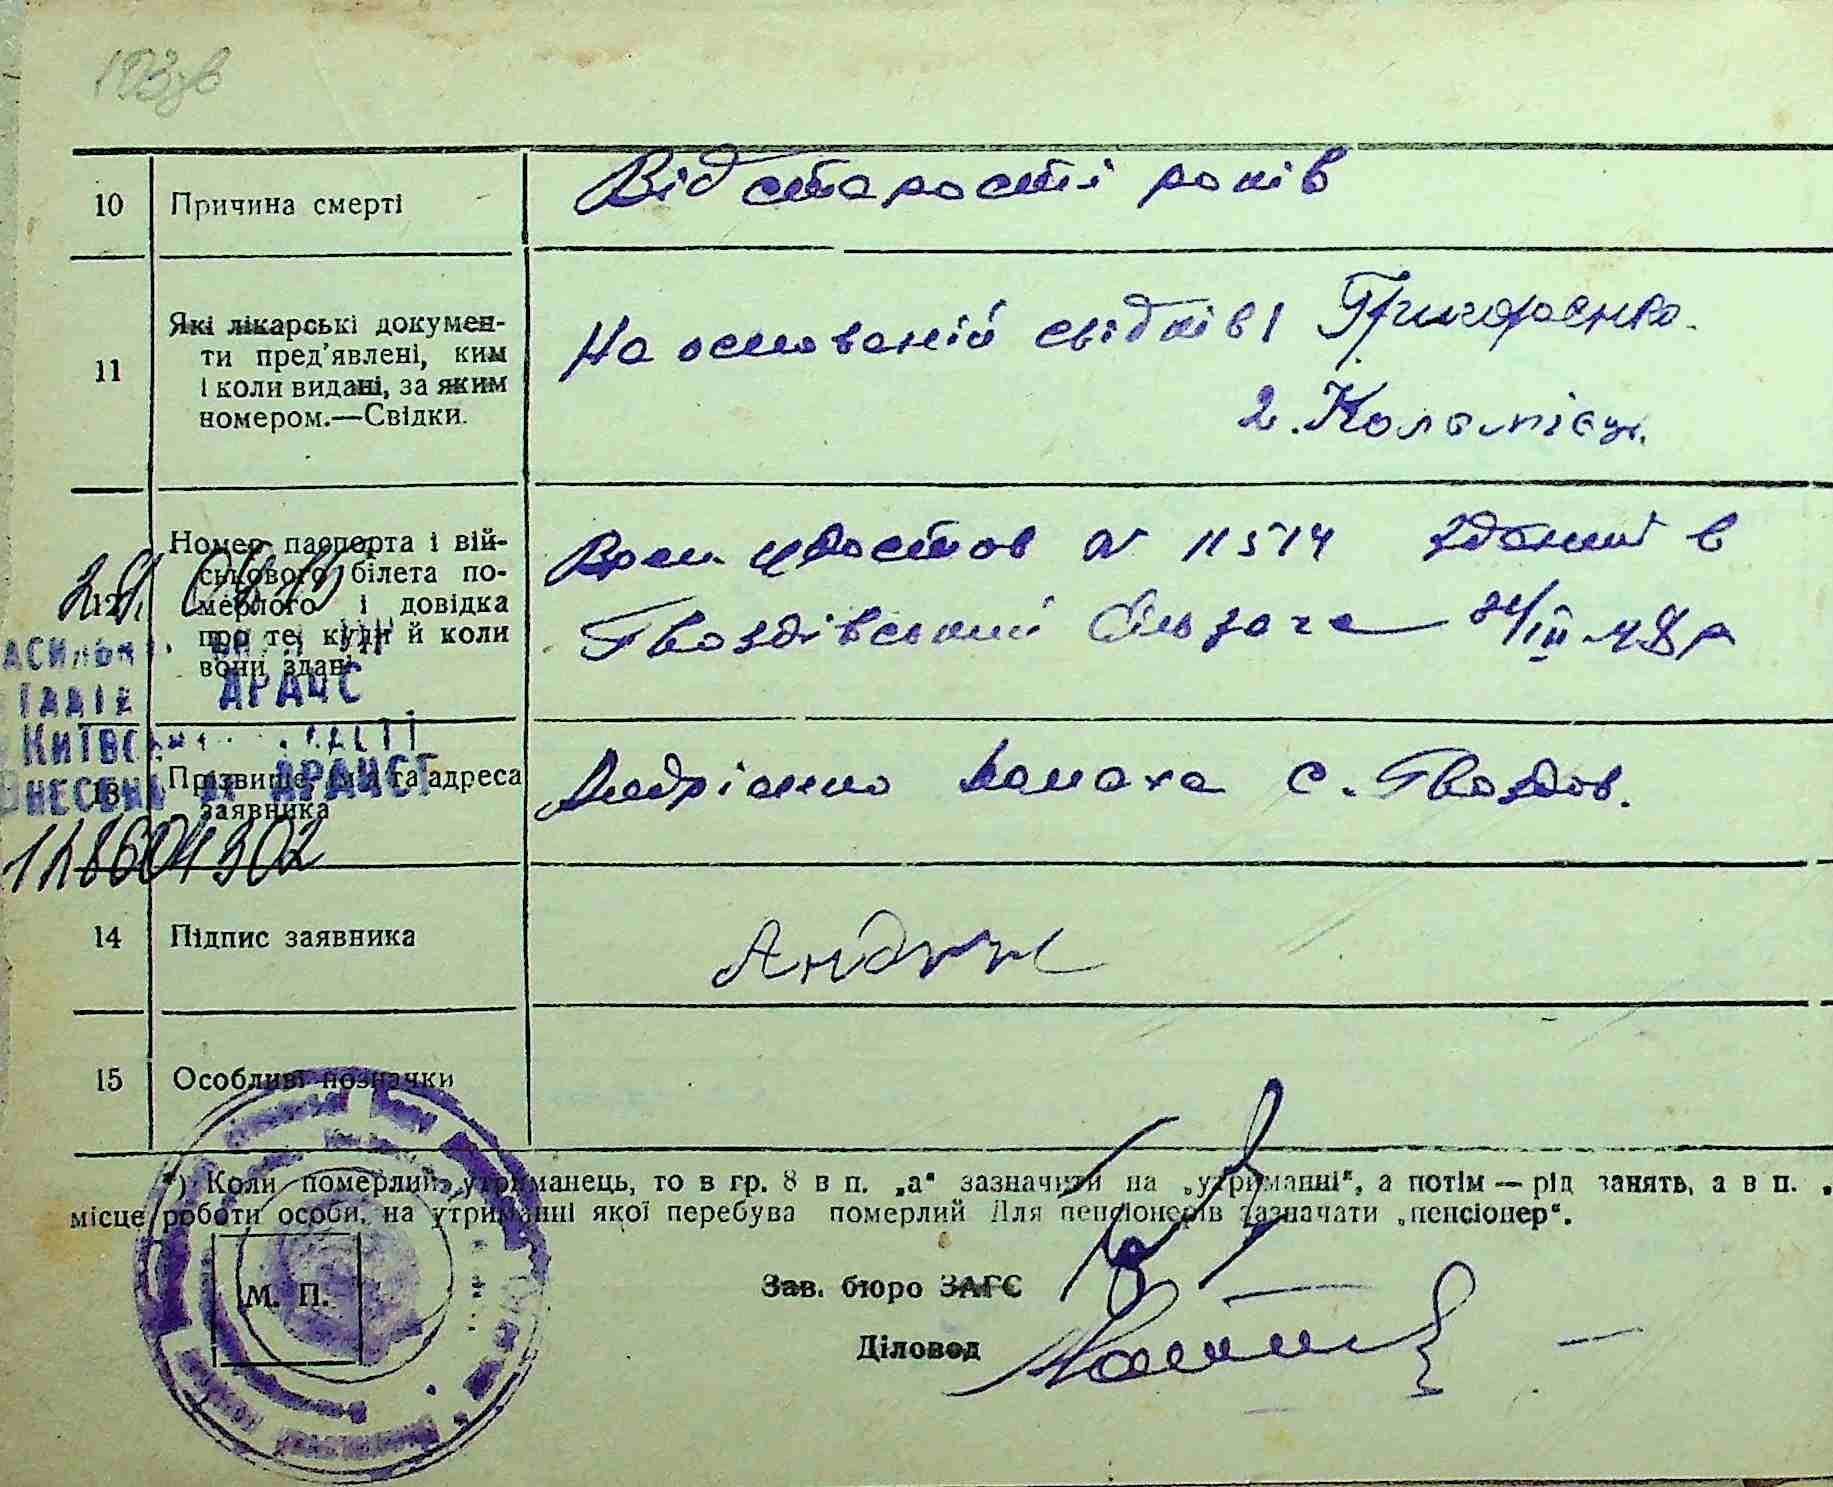 10
Причина смерті
Від старості років
11
Які лікарські докумен-
ти пред'явлені, ким
і коли видані, за яким
номером.—Свідки.
На основаній свідків 1 Григоренко.
2. Коломієць.
12
Номер паспорта і вій-
ськового білета по-
мерлого і довідка
про те, куди й коли
вони здані
Врем. удостов № 11514 зданий в
Гвоздівський сільраза 24/III 48 р
ДРАЦС
13
Прізвище, ім'я та адреса
заявника
Андрієнко с. Гвоздов.
14
Підпис заявника
15
Особливі позначки
*) Коли померлий утриманець, то в гр. 8 в п. „а“ зазначити на „утриманні“, а потім — рід занять, а в п. „
місце роботи особи, на утриманні якої перебува померлий Для пенсіонерів зазначати „пенсіонер“.
М. П.
Зав. бюро ЗАГС
Діловод